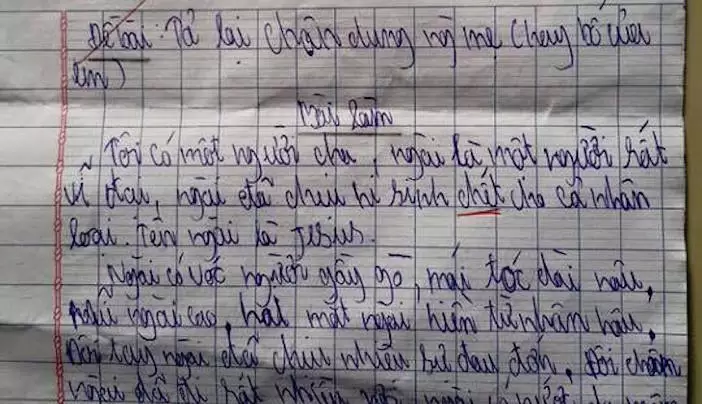 Đề bài: Tả lại chân dung mẹ (hay bố của
em)
Bài làm
Tôi có một người cha, ngài là một người rất
vĩ đại, ngài đã chịu hi sinh chết cho cả nhân
loại. Tên ngài là Jesius.
Ngài có vóc người gầy gò, mái tóc dài nâu,
mũi ngài cao, hai mắt ngài hiền từ nhân hậu.
Đôi tay ngài đã chịu nhiều sự đau đớn. Đôi chân
ngài đã đi rất nhiều ngài